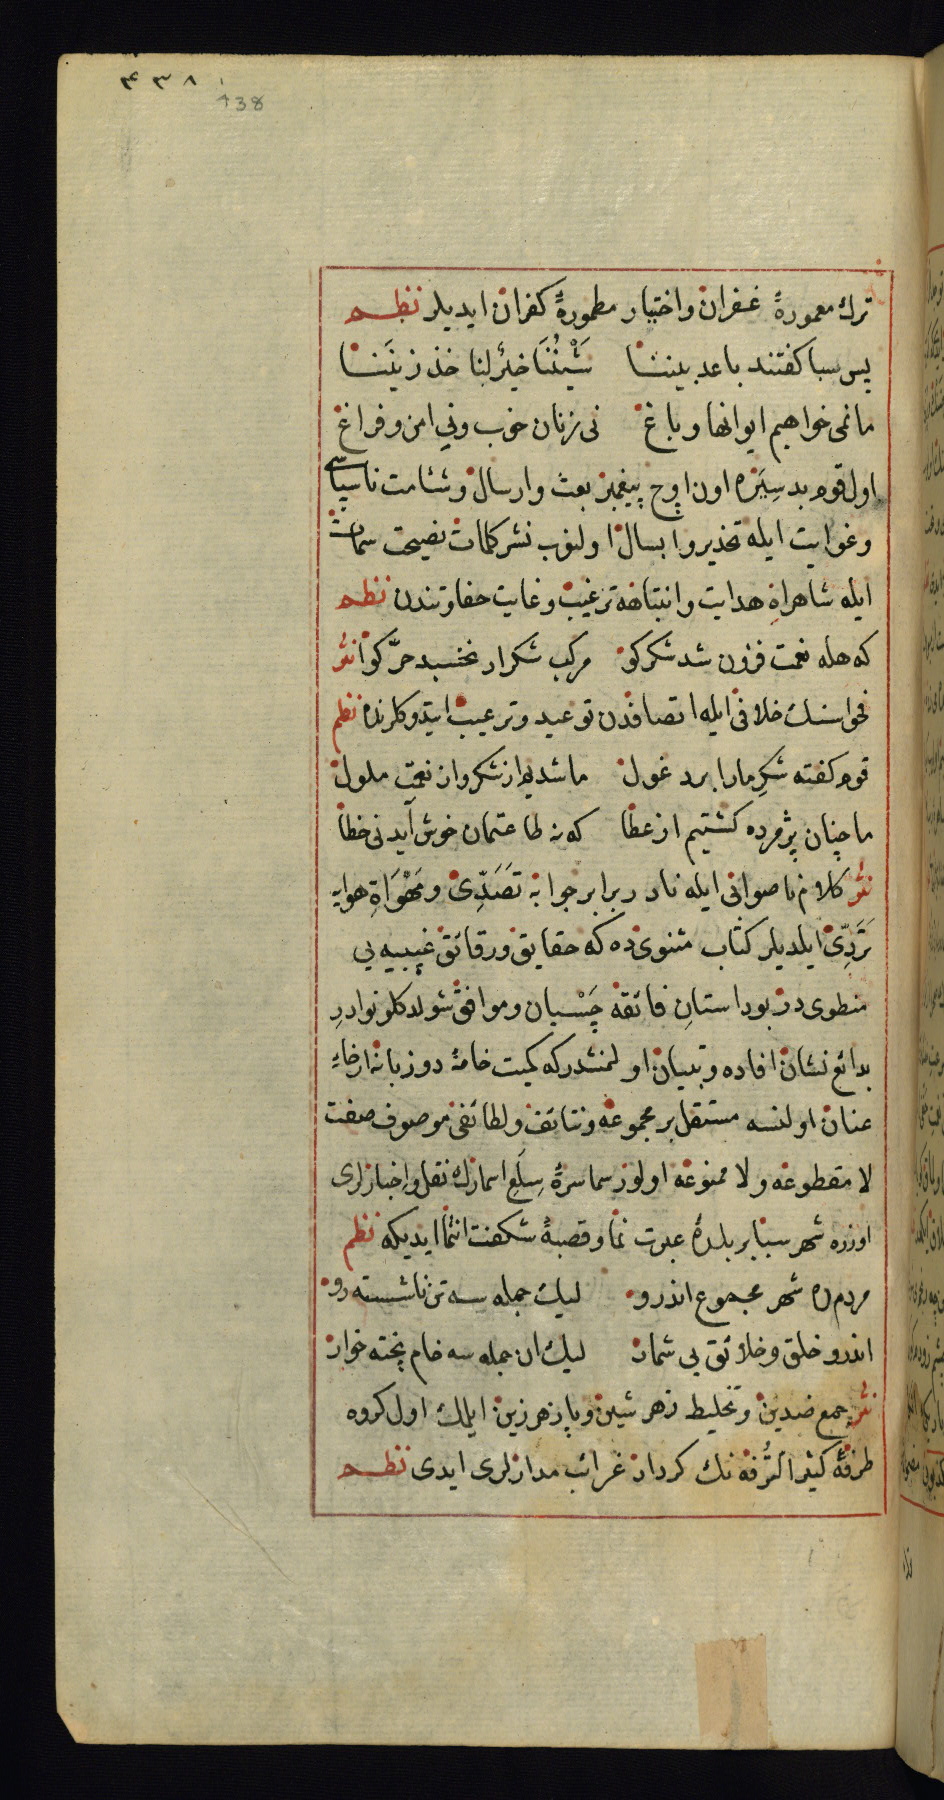 ۴۳۸
438
ترك معمورهٔ غفران و اختیار مطمورهٔ كفران ایدیلر نظم
پس سبا كفتند باعد بیننا شَیْنُنَا خیرٌ لنا خذ زینَنا
ما نمی خواهیم ایوانها و باغ نی زنان خوب و نی امن و فراغ
اول قوم بد سِتیزه اون اوچ پیغمبر بعث و ارسال و شئامت ناسپاسی
و غوایت ایله تحذیر و ابسال اولنوب نشر كلمات نصیحت سمات
ایله شاهراهِ هدایت و انتباهه ترغیب و غایت حفاوتندن نظم
كه هله نعمت فزون شد شكر كو مركب شكر ار بخسبد حرّكوا نثر
فحواسنك خلافی ایله اتصافدن توعید و ترعیب ایتدوكلرنده نظم
قوم كفته شكرِ مارا برد غول ما شدیم از شكر و از نعمت ملول
ما چنان پژمرده كشتیم از عطا كه نه طاعتمان خوش آید نی خطا
نثر كلام ناصوابی ایله نادر برابر جوابه تَصَدِّی و مَهْوَاةِ هوایه
تَرَدِّی ایلدیلر كتاب مثنویده كه حقایق و رقائق غیبیه یی
منطوی در بو داستانِ فائقه چَسْپان و موافق شولدكلو نوادرِ
بدائع نشان افاده و تبیان اولنمشدركه كمیت خامهٔ دو زبانه ارخاءِ
عنان اولنسه مستقل بر مجموعه و نتائف و لطائفی موصوف صفت
لا مقطوعه و لا ممنوعه اولور سماسرهٔ سِلَعِ اسمارك نقل و اخبارلری
اوزره شهر سبا بر بلدهٔ عبرت نما و قصبهٔ شكفت انتما ایدیكه نظم
مردم ده شهر مجموع اندرو لیك جمله سه تن ناشسته رو
اندرو خلق و خلائق بی شمار لیك ان جمله سه خام پخته خوار
نثر جمع ضدین و تخلیط زهر شین و پازهر زین ایلمك اول كروه
طرفهٔ كثیر التُّرفه نك كردار غرائب مدارلری ایدی نظم